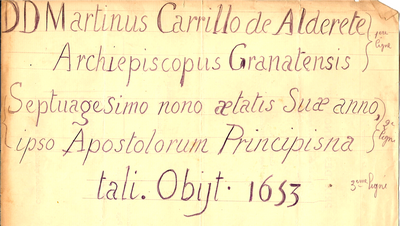 DD Martinus Carrillo de Alderete
Archiepiscopus Granatensis
Septuagesimo nono ætatis Suæ anno,
ipso Apostolorum Principis na
tali. Obijt. 1653
3ème ligne